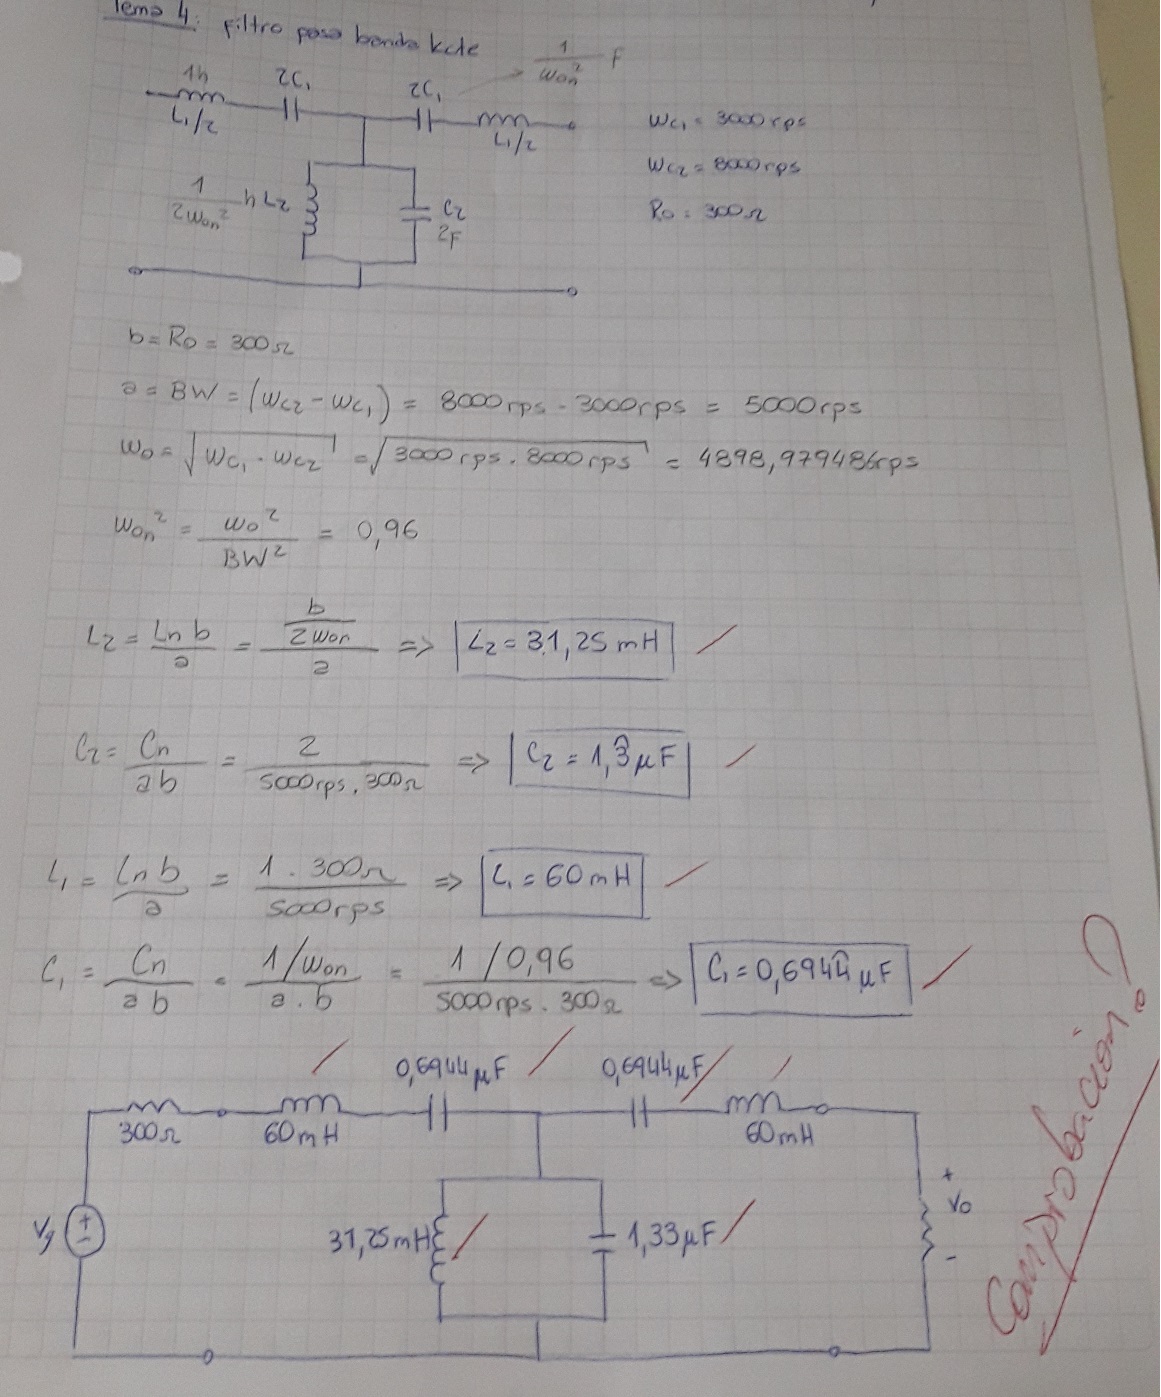 Tema 4: Filtro pasa banda kcte
1h 2C₁ 2C₁ 1/ω₀ₙ² F
L₁/2 L₁/2
ωc₁ = 3000rps
ωc₂ = 8000rps
R₀ = 300Ω
1/2ω₀ₙ² h L₂ C₂
2F
b = R₀ = 300Ω
a = BW = (ωc₂ - ωc₁) = 8000rps - 3000rps = 5000rps
ω₀ = √(ωc₁ · ωc₂) = √(3000rps . 8000rps) = 4898,979486rps
ω₀ₙ² = ω₀²/BW² = 0,96
L₂ = Ln b/a = (b/2ω₀ₙ)/a => L₂ = 31,25mH
C₂ = Cn/ab = 2/(5000rps . 300Ω) => C₂ = 1,3̂μF
L₁ = Ln b/a = 1 . 300Ω/5000rps => L₁ = 60mH
C₁ = Cn/ab = (1/ω₀ₙ)/(a . b) = (1/0,96)/(5000rps . 300Ω) => C₁ = 0,694̂4μF
0,6944μF 0,6944μF
300Ω 60mH 60mH
Vg 31,25mH 1,33μF + V₀ -
Comprobación?